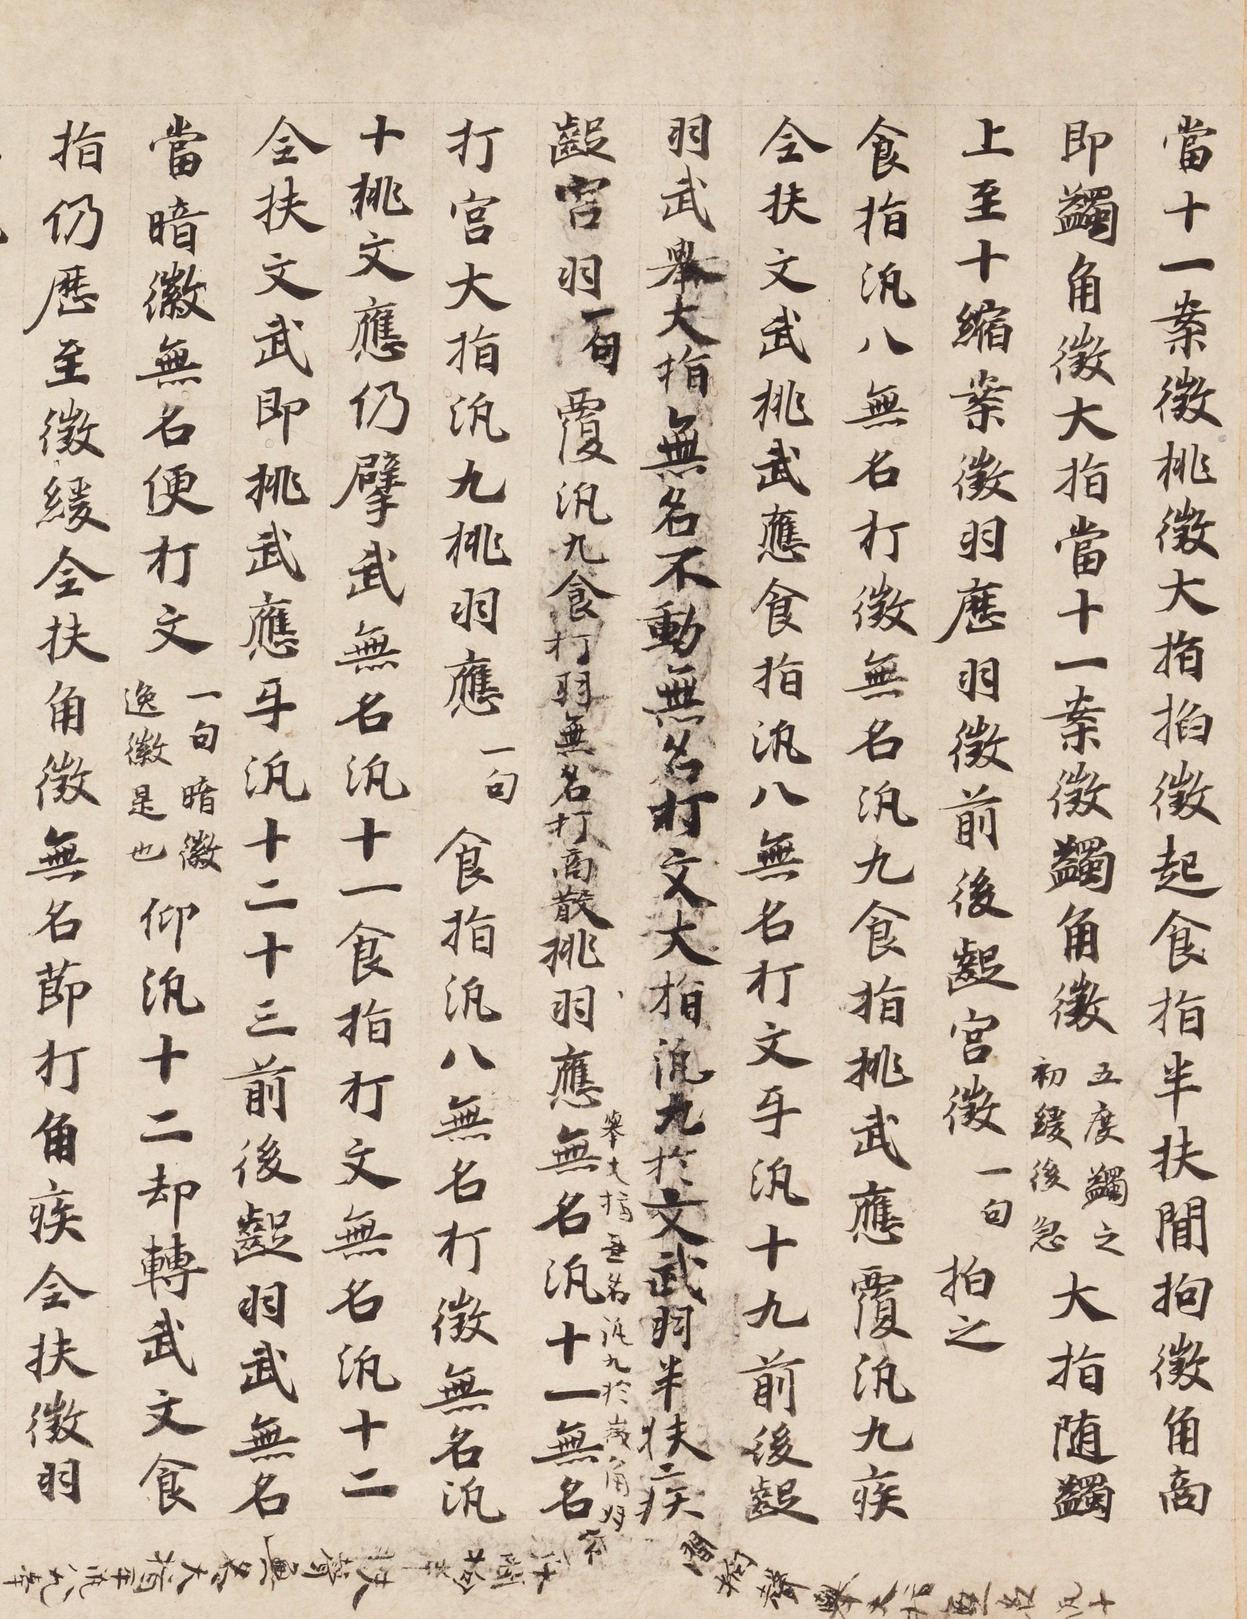 當十一案徵桃徵大指掐徵起食指半扶間拘徵角商
即蠲角徵大指當十一案徵蠲角徵五度蠲之初緩後急大指随蠲
上至十縮案徵羽歷羽徵前後齪宮徵一句拍之
食指汎八無名打徵無名汎九食指挑武應覆汎九疾
全扶文武桃武應食指汎八無名打文㸦汎十九前後齪
羽武舉大指無名不動無名打文大指汎九於文武羽半扶二疾
齪宮羽一句覆汎九食打羽無名打商散挑羽應無名汎十一無名
舉大指無名汎九於
打宮大指汎九桃羽應一句食指汎八無名打徵無名汎
十桃文應仍擘武無名汎十一食指打文無名汎十二
全扶文武即挑武應㸦汎十二十三前後齪羽武無名
當暗徽無名便打文一句暗徽逸徽是也仰汎十二却轉武文食
指仍歷至徵緩全扶角徵無名節打角疾全扶徵羽